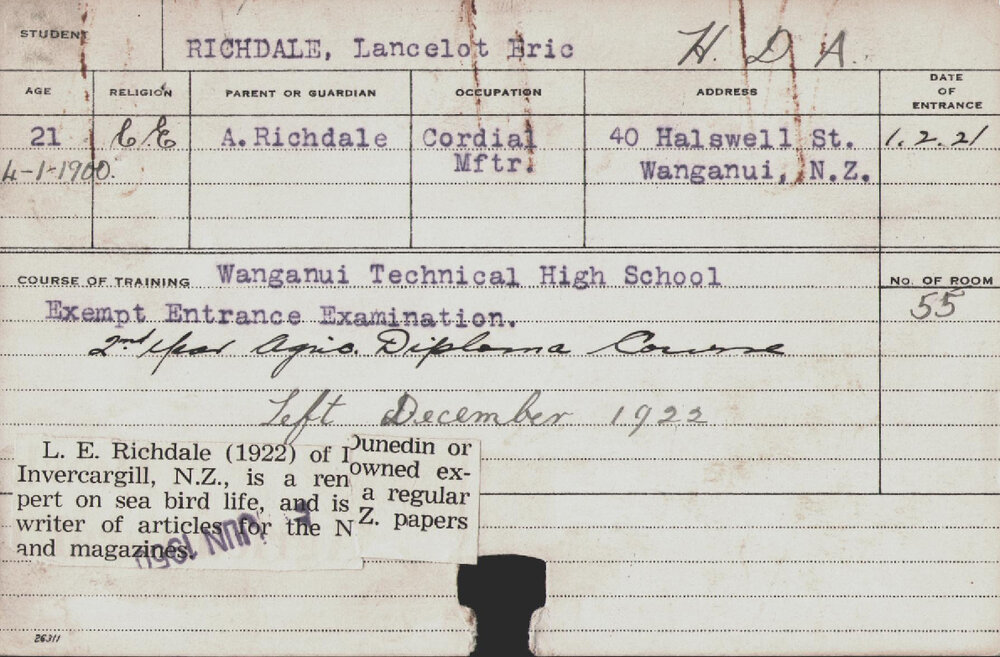 STUDENT RICHDALE, Lancelot Eric H. D. A.
AGE RELIGION PARENT OR GUARDIAN OCCUPATION ADDRESS DATE OF ENTRANCE
21 C.E A. Richdale Cordial 40 Halswell St. 1.2.21
4-1-1900. Mftr. Wanganui, N.Z.
COURSE OF TRAINING Wanganui Technical High School NO. OF ROOM
Exempt Entrance Examination. 55
2nd Year Agric. Diploma Course
Left December 1922
L. E. Richdale (1922) of Dunedin or
Invercargill, N.Z., is a renowned ex-
pert on sea bird life, and is a regular
writer of articles for the N Z. papers
and magazines.
JUN 1950
26311